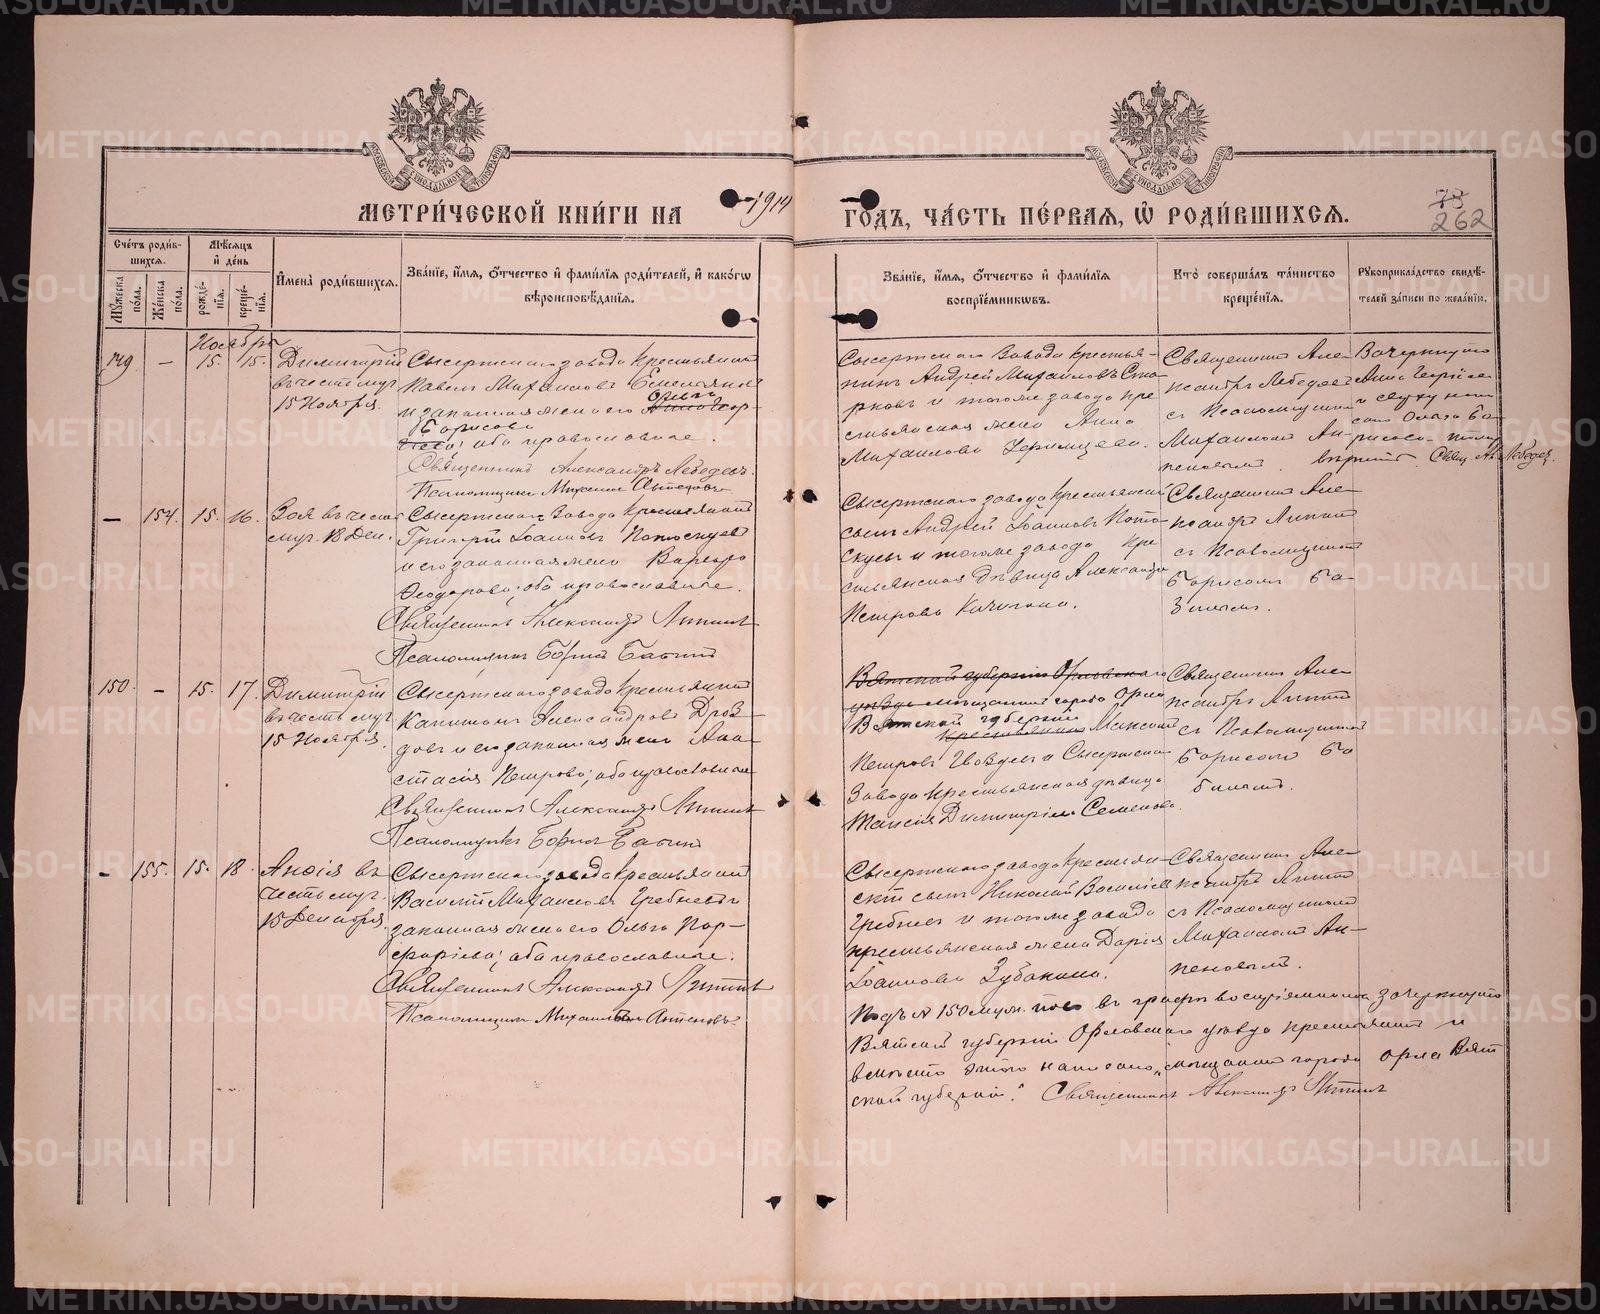 МЕТРИ́ЧЕСКОЙ КНИ́ГИ НА 1914 ГО́ДЪ, ЧА́СТЬ ПЕ́РВАЯ, Ѡ РОДИ́ВШИХСЯ.
262
Сче́тъ роди́в-
шихся.
Мѣ́сяцъ
и де́нь
Мꙋ́жеска по́ла.
Же́нска по́ла.
рожде́-
нїя.
креще́-
нїя.
И҆мена̀ роди́вшихся.
Зва́нїе, и҆́мя, ѻ҆́тчество и҆ фами́лїя роди́телей, и҆ како́гѡ
вѣроисповѣ́данїя.
Зва́нїе, и҆́мя, ѻ҆́тчество и҆ фами́лїя
воспрїе́мникѡвъ.
Кто̀ соверша́лъ та́инство
креще́нїя.
Рꙋкоприкла́дство свидѣ́-
телей за́писи по жела́нїю.
Ноябрь
149. — 15. 15.
Димитрій
въ честь муч.
15 Ноября.
Сысертскаго завода крестьянинъ
Павелъ Михаиловъ Емельяновъ
и законная жена его
Ольга
Борисова
оба православные.
Священникъ Александръ Лебедевъ.
Псаломщикъ Михаилъ
Сысертскаго завода крестья-
нинъ Андрей Михаиловъ Ста-
рковъ и тогоже завода кре-
стьянская жена Анна
Михаилова
Священникъ Але-
ксандръ Лебедевъ
съ Псаломщикомъ
Михаиломъ Ан-
пеновымъ.
Зачеркнуто
Анна Георгіева
и сверху напи-
сано Ольга Бо-
рисова
вѣрить. Свящ. Ал. Лебедевъ.
— 154. 15. 16.
Зоя въ честь
муч. 18 Дек.
Сысертскаго завода крестьянинъ
Григорій Іоанновъ Потоскуевъ
и его законная жена Варвара
Ѳеодорова; оба православные.
Священникъ Александръ
Псаломщикъ Борисъ
Сысертскаго завода крестьянскій
сынъ Андрей Іоанновъ Пото-
скуевъ и тогоже завода кре-
стьянская дѣвица Александра
Петрова
Священникъ Але-
ксандръ
съ Псаломщикомъ
Борисомъ Ба-
150. — 15. 17.
Димитрій
въ честь муч.
15 Ноября.
Сысертскаго завода крестьянинъ
Александровъ Дроз-
довъ и его законная жена Ана-
стасія Петрова; оба православные
Священникъ Александръ
Псаломщикъ Борисъ
Вятской губерніи Орловскаго
уѣзда мѣщанинъ города Орла
Вятской губерніи
крестьянинъ Максимъ
Петровъ Гвоздевъ и Сысертскаго
завода крестьянская дѣвица
Таисія Димитріева Семенова.
Священникъ Але-
ксандръ
съ Псаломщикомъ
Борисомъ Ба-
— 155. 15. 18.
Анѳія въ
честь муч.
15 Декабря.
Сысертскаго завода крестьянинъ
Василій Михаиловъ Гребневъ
законная жена его Ольга Пор-
фирьева; оба православные.
Священникъ Александръ
Псаломщикъ Михаилъ
Сысертскаго завода крестьян-
скій сынъ Николай Васильевъ
Гребневъ и тогоже завода
крестьянская жена Дарія
Іоаннова Зубакина.
Священникъ Але-
ксандръ
съ Псаломщикомъ
Михаиломъ Ан-
пеновымъ.
Подъ № 150 муж. пола въ графѣ воспріемниковъ зачеркнуто
Вятской губерніи Орловскаго уѣзда крестьянинъ и
вмѣсто этого написано „мѣщанинъ города Орла Вят-
ской губерніи.“ Священникъ Александръ